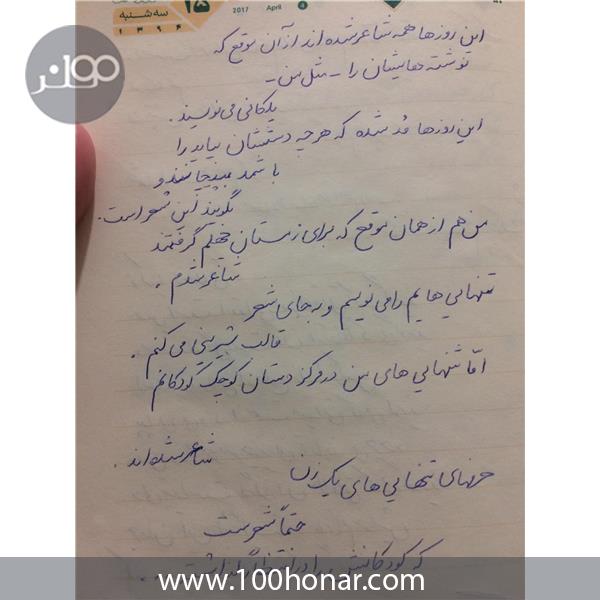 سه شنبه ۱۵
۱۳۹۶
2017 April 4
هونر
این روزها همه شاعر شده اند از آن موقع که
نوشته هایشان را - مثل من -
پلکانی می نویسند.
این روزها مُد شده که هرچه دستشان بیاید را
با شمد بپیچانند و
بگویند این شعر است.
من هم از همان موقع که برای زمستان گرفتند
شاعر شدم.
تنهایی هایم را می نویسم و به جای شعر
قالب شیرینی می کنم.
امّا تنهایی های من در مرکز دستان کوچک کودکانم
شاعر شده اند.
حرفهای تنهایی های یک زن
حتماً شعر ست
که کودکانش را در
www.100honar.com